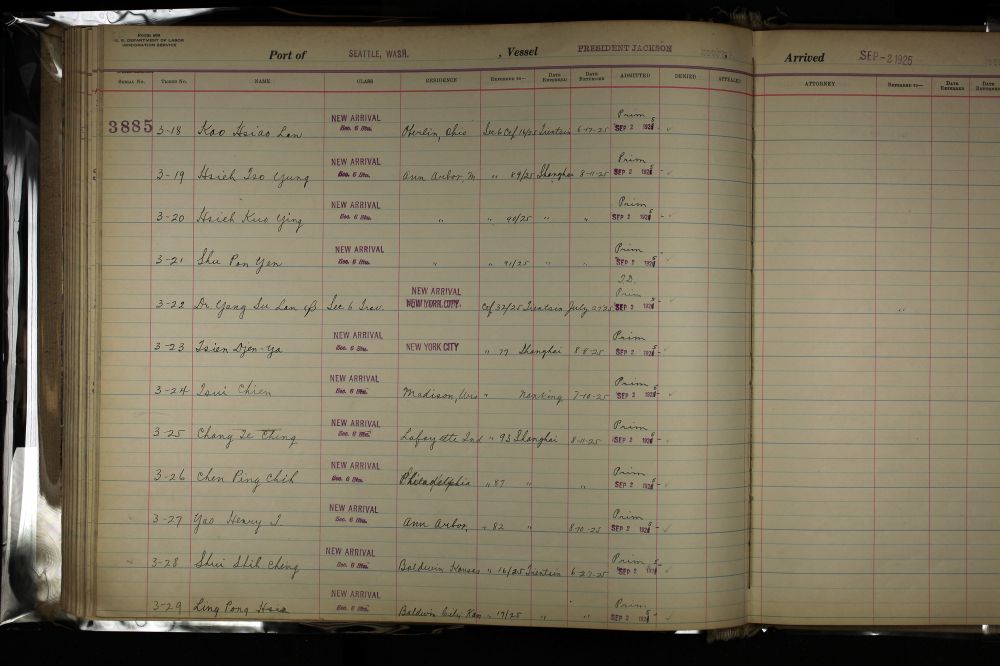 Form 499
U. S. DEPARTMENT OF LABOR
IMMIGRATION SERVICE
Port of SEATTLE, WASH. , Vessel PRESIDENT JACKSON Arrived SEP -2 1925
SERIAL NO. TICKET NO. NAME CLASS RESIDENCE REFERRED TO— DATE REFERRED DATE RETURNED ADMITTED DENIED APPEALED ATTORNEY REFERRED TO— DATE REFERRED DATE RETURNED
NEW ARRIVAL Prim
3885 3-18 Kao Hsiao Lan Sec. 6 Stu. Oberlin, Ohio Sec 6 Cef 16/25 Tientsin 6-17-25 SEP 2 1925
NEW ARRIVAL Prim
3-19 Hsieh Tso Yung Sec. 6 Stu. Ann Arbor, M " 89/25 Shanghai 8-11-25 SEP 2 1925
NEW ARRIVAL Prim
3-20 Hsieh Kuo Ying Sec. 6 Stu. " " 90/25 " " SEP 2 1925
NEW ARRIVAL Prim
3-21 Shu Pan Yen Sec. 6 Stu. " " 91/25 " " SEP 2 1925
NEW ARRIVAL T.D. Prim
3-22 Dr. Yang Su Lan Sec 6 Trav. NEW YORK CITY. Cef 32/25 Tientsin July 27 25 SEP 2 1925
NEW ARRIVAL Prim
3-23 Tsien Djen-Ya Sec. 6 Stu. NEW YORK CITY " 77 Shanghai 8-8-25 SEP 2 1925
NEW ARRIVAL Prim
3-24 Tsui Chien Sec. 6 Stu. Madison, Wis " Nanking 7-10-25 SEP 2 1925
NEW ARRIVAL Prim
3-25 Chang Te Ching Sec. 6 Stu. Lafayette Ind " 93 Shanghai 8-11-25 SEP 2 1925
NEW ARRIVAL Prim
3-26 Chen Ping Chih Sec. 6 Stu. Philadelphia " 87 " " SEP 2 1925
NEW ARRIVAL Prim
3-27 Yao Henry I. Sec. 6 Stu. Ann Arbor, " 82 " 8-10-25 SEP 2 1925
NEW ARRIVAL Prim
3-28 Shui Shih Cheng Sec. 6 Stu. Baldwin Kansas " 16/25 Tientsin 6-27-25 SEP 2 1925
NEW ARRIVAL Prim
3-29 Ling Pong Hsia Sec. 6 Stu. Baldwin City Kan " 17/25 " " SEP 2 1925